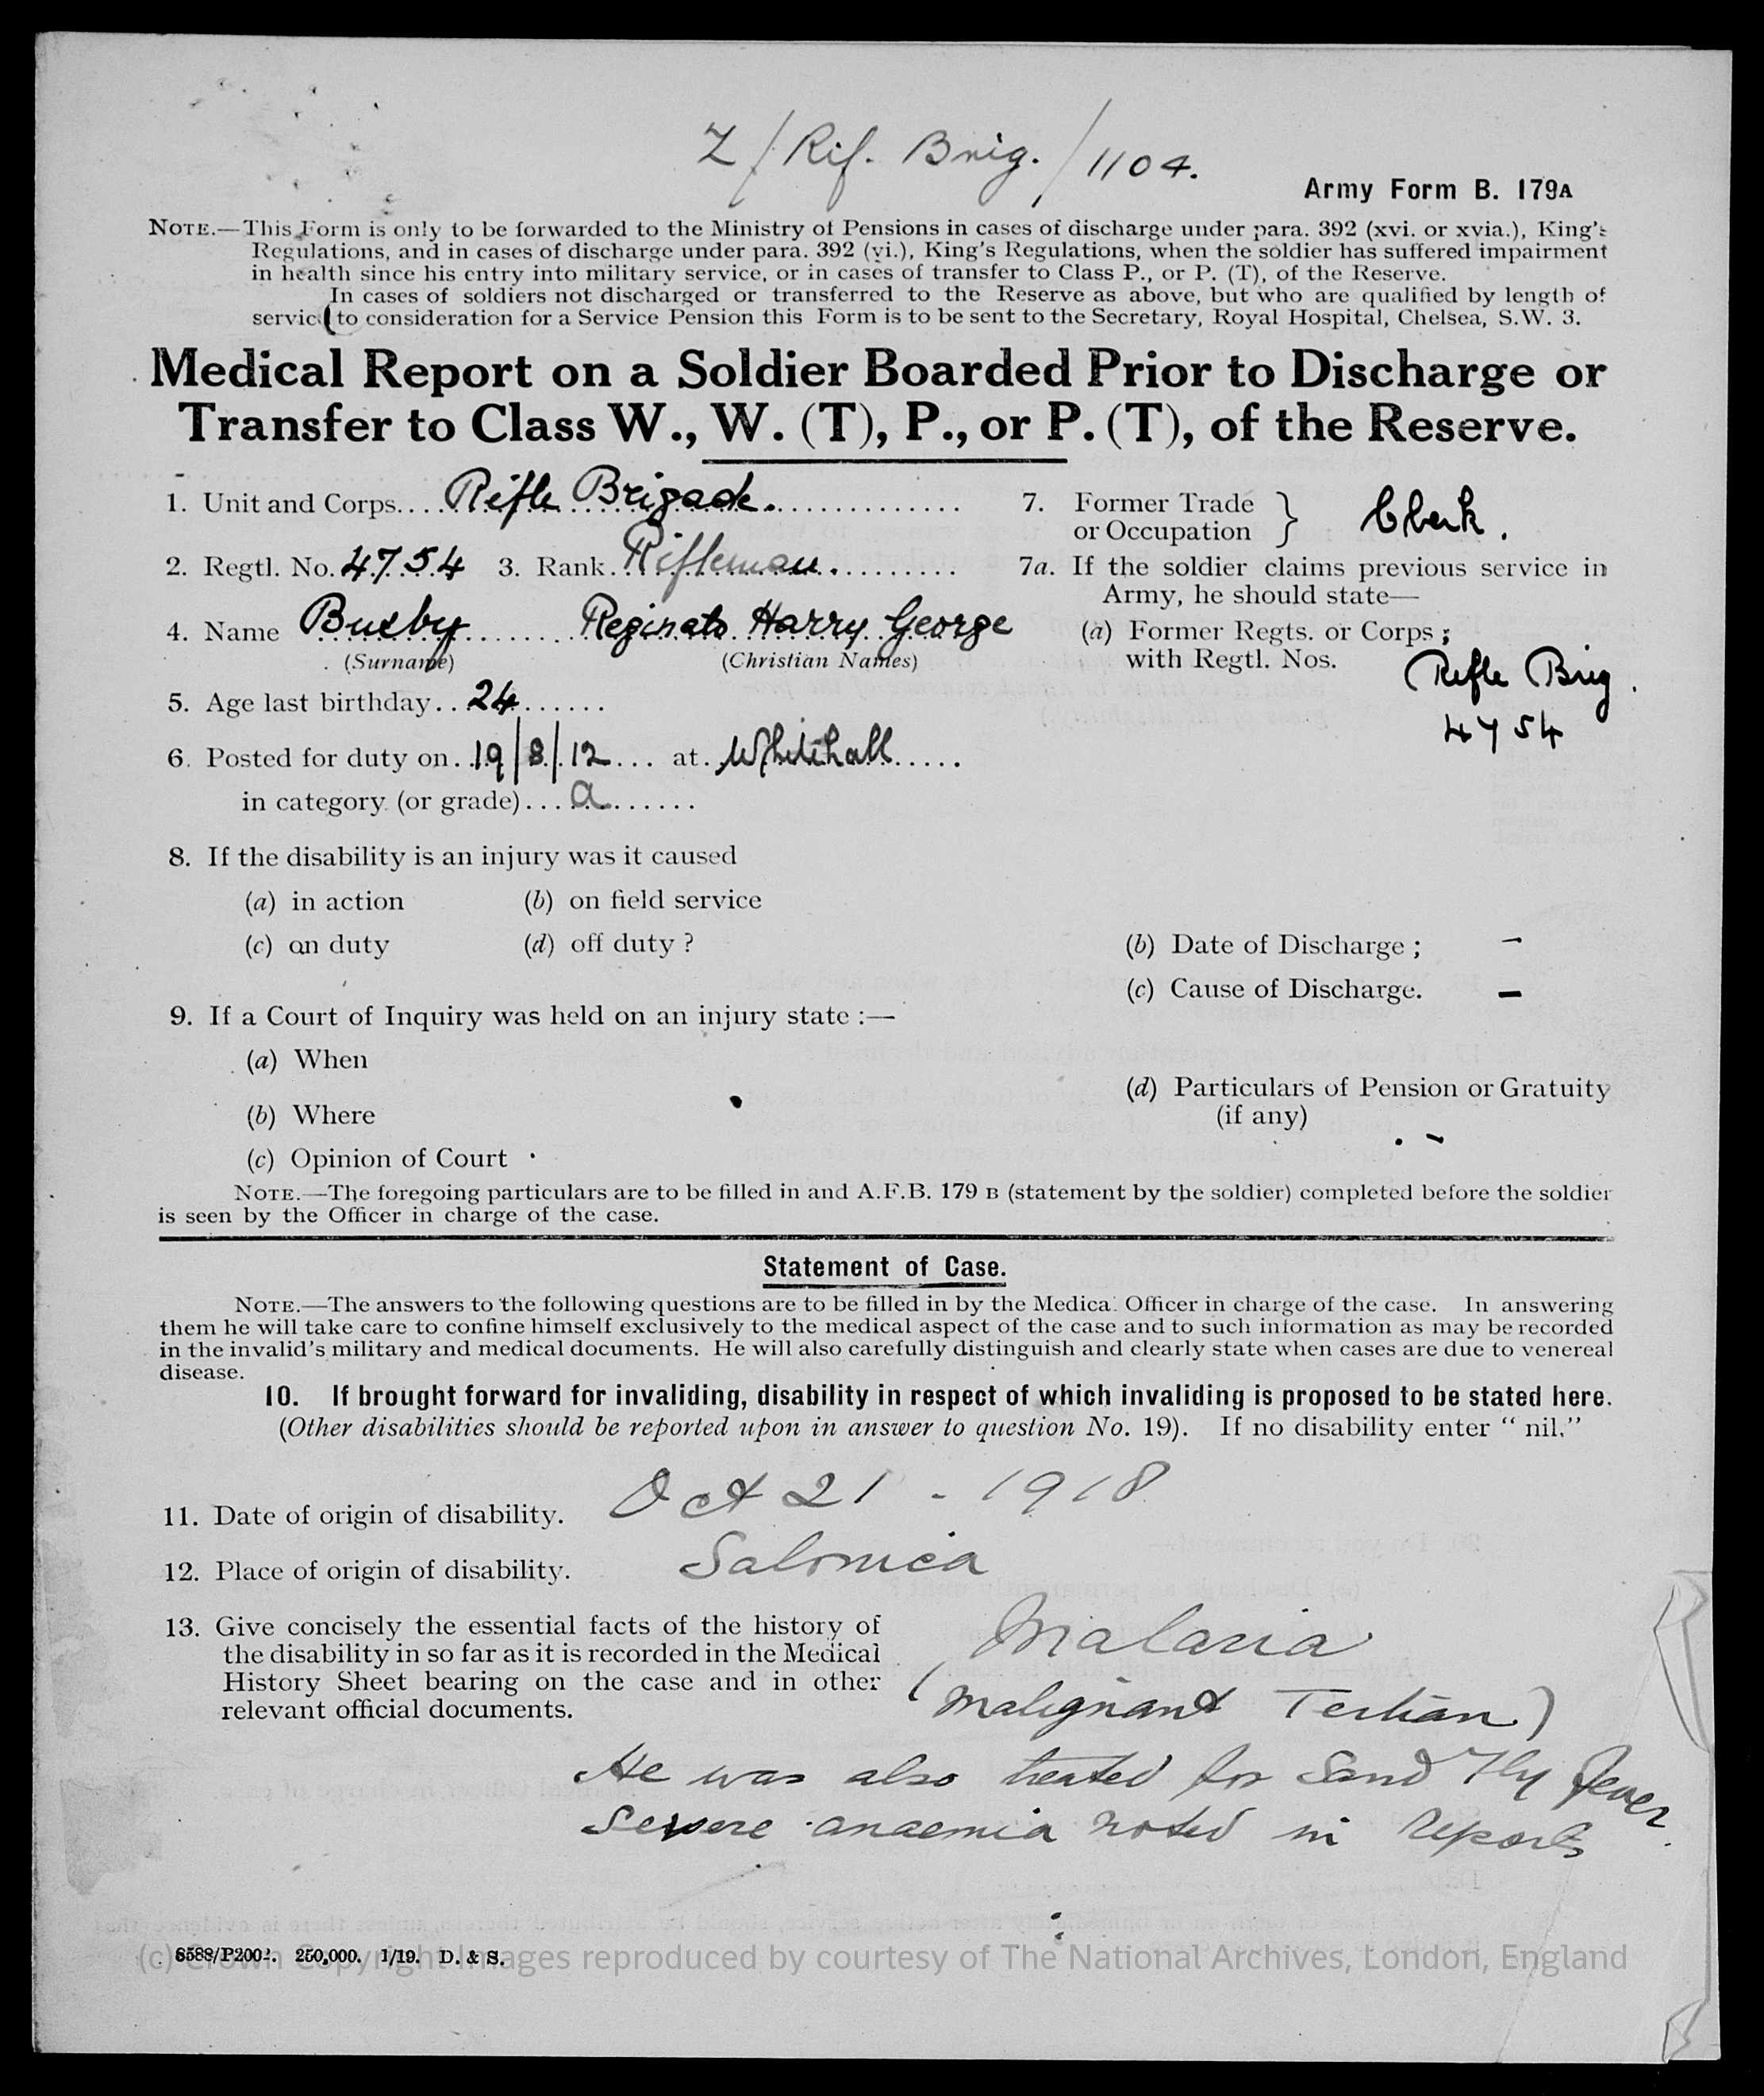 Z/Rif. Brig./1104.
Army Form B. 179A
NOTE.—This Form is only to be forwarded to the Ministry of Pensions in cases of discharge under para. 392 (xvi. or xvia.), King's
Regulations, and in cases of discharge under para. 392 (vi.), King's Regulations, when the soldier has suffered impairment
in health since his entry into military service, or in cases of transfer to Class P., or P. (T), of the Reserve.
In cases of soldiers not discharged or transferred to the Reserve as above, but who are qualified by length of
service to consideration for a Service Pension this Form is to be sent to the Secretary, Royal Hospital, Chelsea, S.W. 3.
Medical Report on a Soldier Boarded Prior to Discharge or
Transfer to Class W., W. (T), P., or P. (T), of the Reserve.
1. Unit and Corps.... Rifle Brigade.
2. Regtl. No. 4754 3. Rank. Rifleman.
4. Name Buxby Reginald Harry George
(Surname) (Christian Names)
5. Age last birthday.. 24
6. Posted for duty on.. 19/8/12 at. Whitehall
in category (or grade)... a
7. Former Trade or Occupation } Clerk.
7a. If the soldier claims previous service in
Army, he should state—
(a) Former Regts. or Corps;
with Regtl. Nos.
Rifle Brig.
4754
8. If the disability is an injury was it caused
(a) in action (b) on field service
(c) on duty (d) off duty ?
(b) Date of Discharge ; –
(c) Cause of Discharge. –
9. If a Court of Inquiry was held on an injury state :—
(a) When
(b) Where
(c) Opinion of Court
(d) Particulars of Pension or Gratuity
(if any) –
NOTE.—The foregoing particulars are to be filled in and A.F.B. 179 B (statement by the soldier) completed before the soldier
is seen by the Officer in charge of the case.
Statement of Case.
NOTE.—The answers to the following questions are to be filled in by the Medical Officer in charge of the case. In answering
them he will take care to confine himself exclusively to the medical aspect of the case and to such information as may be recorded
in the invalid's military and medical documents. He will also carefully distinguish and clearly state when cases are due to venereal
disease.
10. If brought forward for invaliding, disability in respect of which invaliding is proposed to be stated here.
(Other disabilities should be reported upon in answer to question No. 19). If no disability enter “ nil.”
11. Date of origin of disability. Oct 21 - 1918
12. Place of origin of disability. Salonica
13. Give concisely the essential facts of the history of
the disability in so far as it is recorded in the Medical
History Sheet bearing on the case and in other
relevant official documents.
Malaria
(Malignant Tertian)
He was also treated for Sand Fly fever.
Severe anaemia noted in reports
6588/P2002. 250,000. 1/19. D. & S.
(c) Crown Copyright Images reproduced by courtesy of The National Archives, London, England